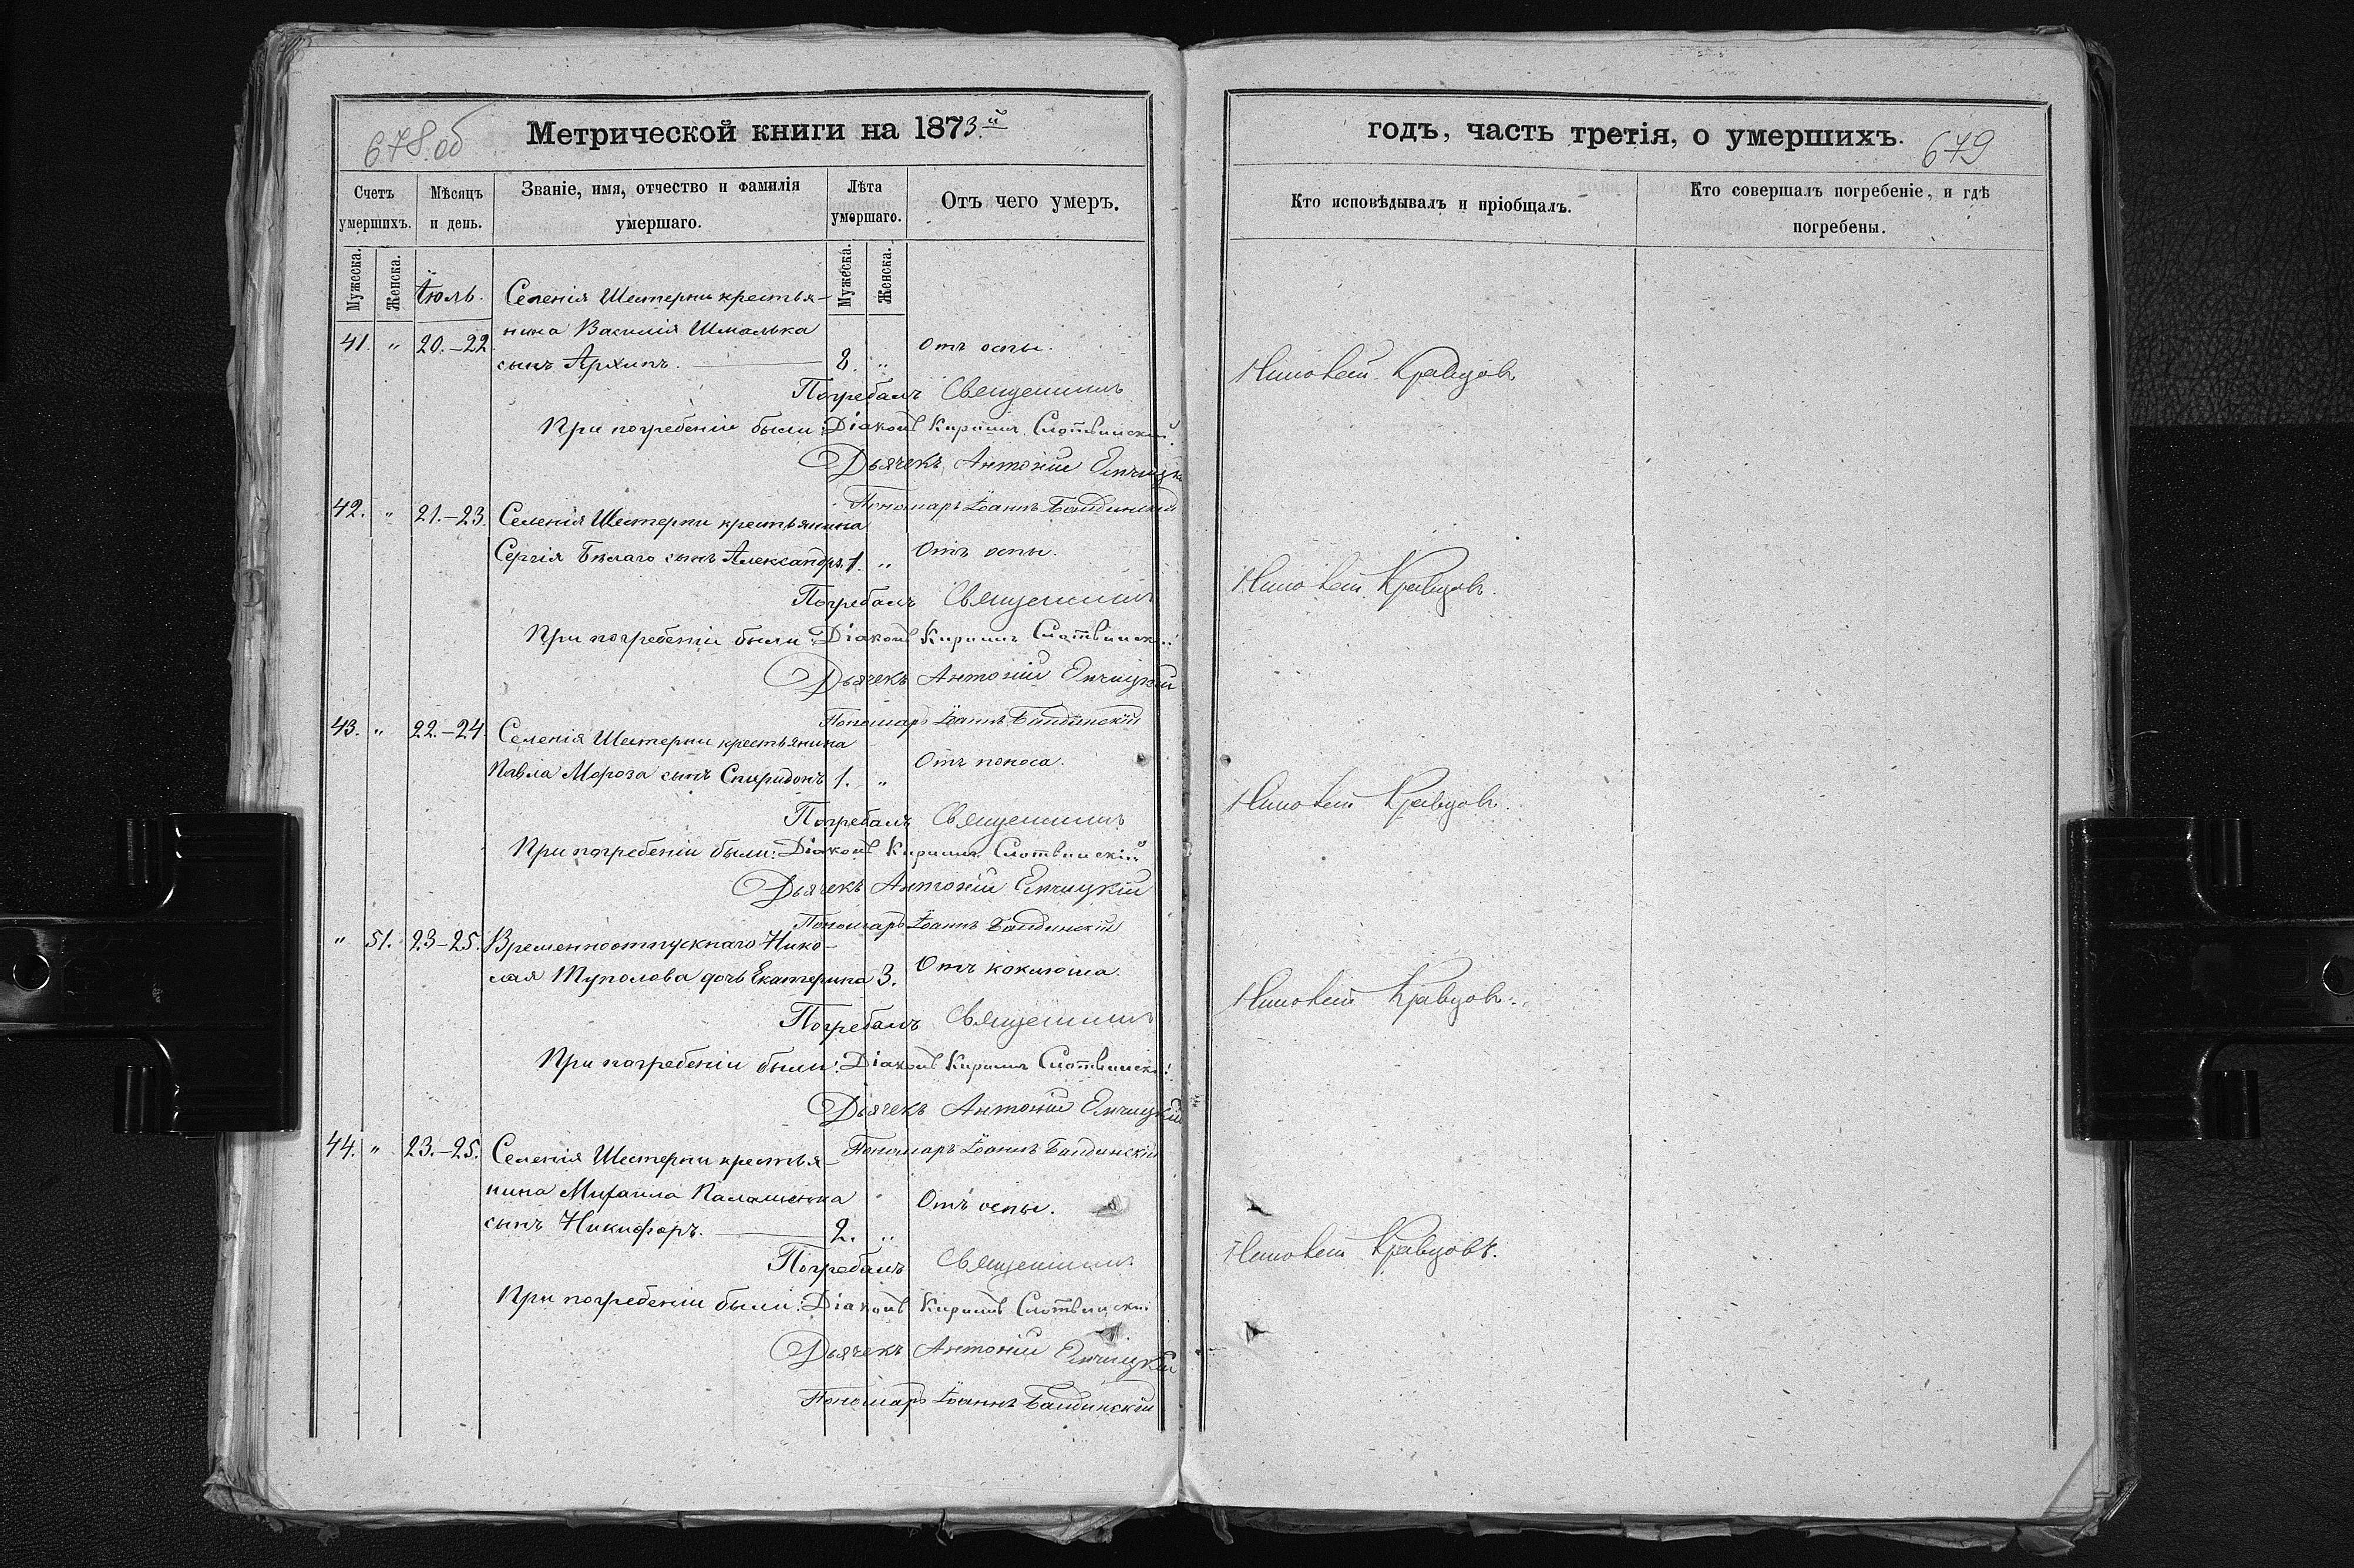 678 об
Метрической книги на 1873й
Счетъ умершихъ.
Мѣсяцъ и день.
Званіе, имя, отчество и фамилія умершаго.
Лѣта умершаго.
Отъ чего умеръ.
Мужеска.
Женска.
Мужеска.
Женска.
Іюль.
Селенія Шестерни крестья-
нина Василія Шмалька
41. " 20.-22 сынъ Архипъ. 8. " Отъ оспы.
Погребалъ Священникъ
При погребеніи были: Діаконъ Кирилл Слотвинскій.
Дьячекъ Антоній Елчицкій
Пономарь Іоаннъ Бандинскій
42. " 21.-23. Селенія Шестерни крестьянина
Сергія Бѣлаго сынъ Александръ 1. " Отъ оспы.
Погребалъ Священникъ
При погребеніи были: Діаконъ Кирилл Слотвинскій
Дьячекъ Антоній Елчицкій
Пономарь Іоаннъ Бандинскій
43. " 22.-24. Селенія Шестерни крестьянина
Павла Мороза сынъ Спиридонъ 1. " Отъ поноса.
Погребалъ Священникъ
При погребеніи были: Діаконъ Кирилл Слотвинскій
Дьячекъ Антоній Елчицкій
Пономарь Іоаннъ Бандинскій
" 51. 23-25. Временноотпускнаго Нико-
лая Туполова дочь Екатерина 3. Отъ коклюша.
Погребалъ Священникъ
При погребеніи были: Діаконъ Кирилл Слотвинскій
Дьячекъ Антоній Елчицкій
Пономарь Іоаннъ Бандинскій
44. " 23.-25. Селенія Шестерни крестья-
нина Михаила Палашенка Отъ оспы.
сынъ Никифоръ. 2. "
Погребалъ Священникъ
При погребеніи были: Діаконъ Кирилл Слотвинскій
Дьячекъ Антоній Елчицкій
Пономарь Іоаннъ Бандинскій
годъ, часть третія, о умершихъ.
679
Кто исповѣдывалъ и пріобщалъ.
Кто совершалъ погребеніе, и гдѣ погребены.
Кравцовъ
Кравцовъ.
Кравцовъ.
Кравцовъ.
Кравцовъ.